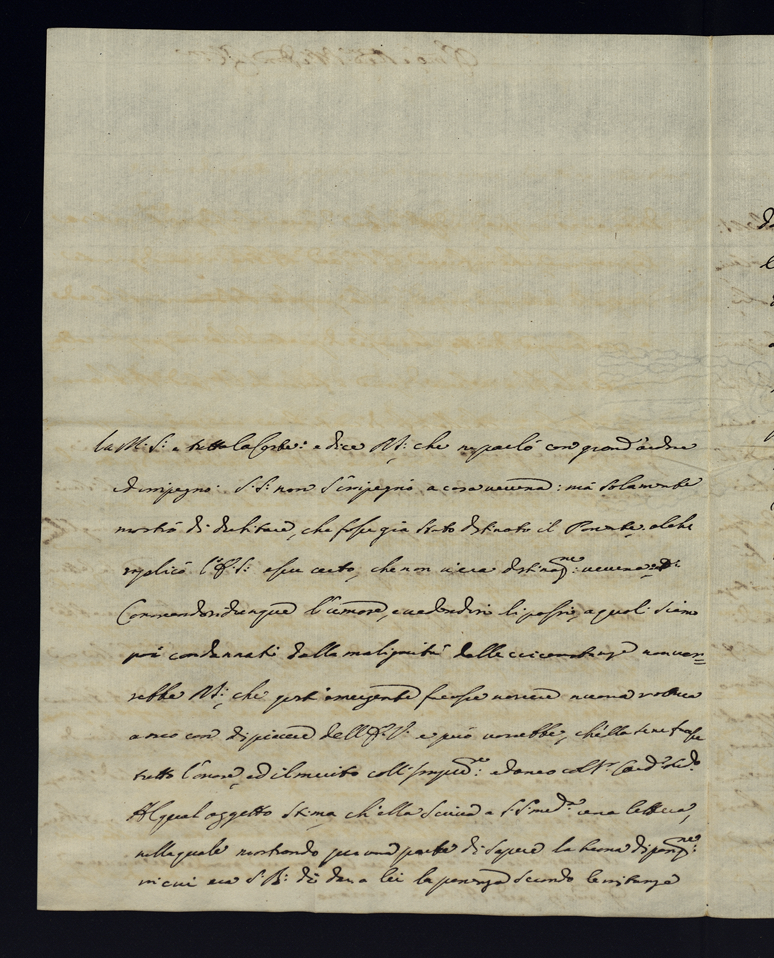 la M: S: e tutta la Corte: e dice N: che ne parlò con grand'ardore
ed impegno: S. S: non s'impegnò a cosa veruna: mà solamente
mostrò di dubitare, che fosse già stato destinato il Ponente, al che
replicò l'E. S: esser certo, che non v'era destinaz.ne veruna.
Conoscendosi dunque l'umore, e vedendosi li passi, a quali siamo
poi condannati dalla malignità delle circostanze non vor=
rebbe N: che quest'emergente facesse nascere nuova rottura
anco con dispiacere dell'E. V: e però vorrebbe, ch'ella si
tutto l'onore, ed il merito coll' ed anco col Sr. Card.
Al qual oggetto stima, ch'ella scriva a S. S. med.ma una lettera,
nella quale mostrando per una parte di sapere la buona disposiz.ne
in cui era S. B: di dare a lei la ponenza secondo le istanze